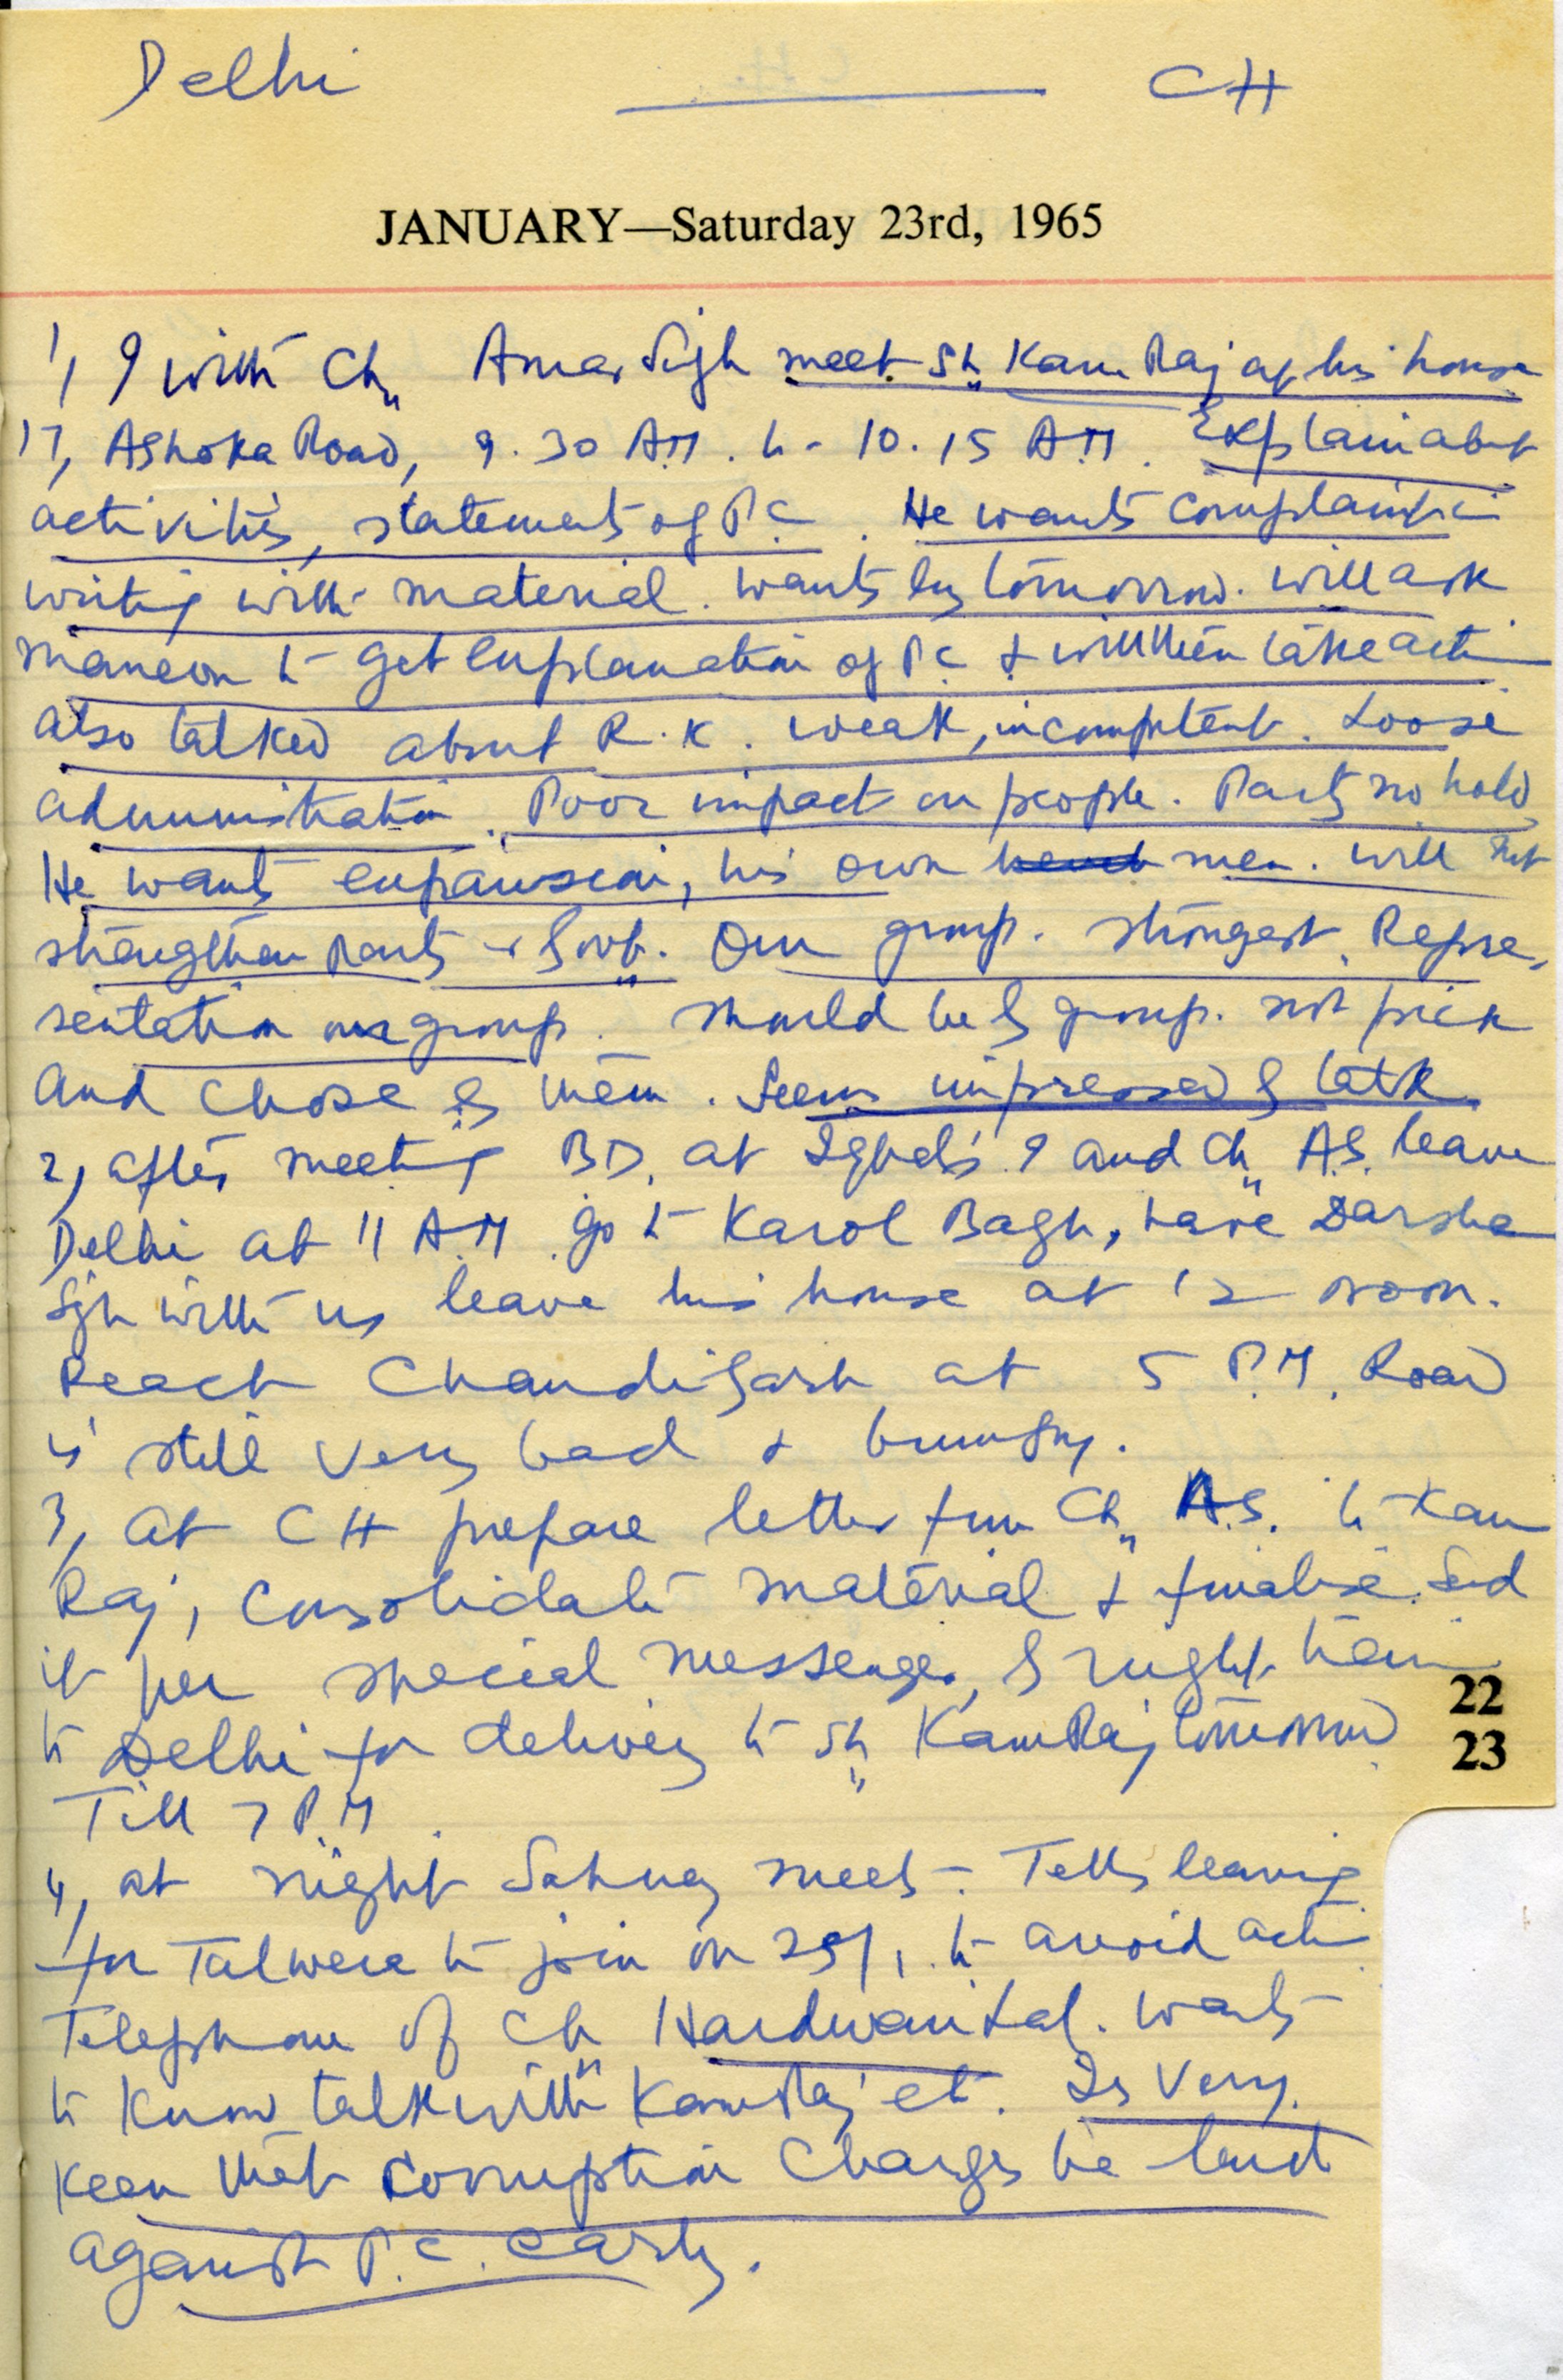 Delhi ——— CH
JANUARY—Saturday 23rd, 1965
1, I with Ch. Amar Singh meet Sh. Kam Raj at his house
17, Ashoka Road, 9.30 A.M. to 10.15 A.M. Explain about
activities, statements of P.C. He wants complaint in
writing with material. wants by tomorrow. will ask
to get explanation of P.C. & will then take action
also talked about R.K. weak, incompetent. Loose
administration. Poor impact on people. Party no hold
He wants expansion, his own men. will not
strengthen Party or Govt. Our group. strongest. Repre-
sentation our group. should be by group. not pick
and chose by them. Seems impressed by talk.
2, after meeting B.D. at Iqbal's I and Ch. A.S. leave
Delhi at 11 A.M. go to Karol Bagh, have Darshan
Sgh with us leave his house at 12 noon.
Reach Chandigarh at 5 P.M. Road
is still very bad & bumpy.
3, at CH prepare letter from Ch. A.S. to Kam
Raj, consolidate material & finalise. Send
it per special messenger, by night train
to Delhi for delivery to Sh. KamRaj tomorrow
Till 7 P.M.
22
23
4, at night Sahney meets. Tells leaving
for Talwara to join on 25/1. to avoid acti
Telephone of Ch. Hardwari Lal. wants
to know talk with KamRaj etc. Is very
keen that corruption charges be
against P.C. early.